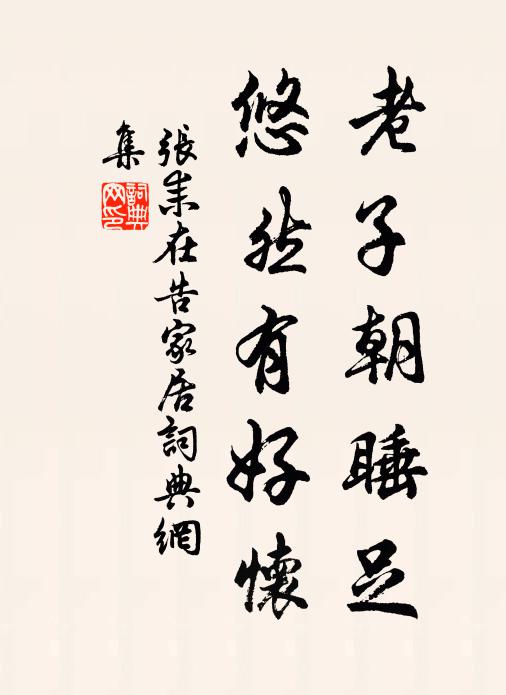 老子朝睡足
悠然有好懷
張耒在告家居詞典網
集
詞典網印